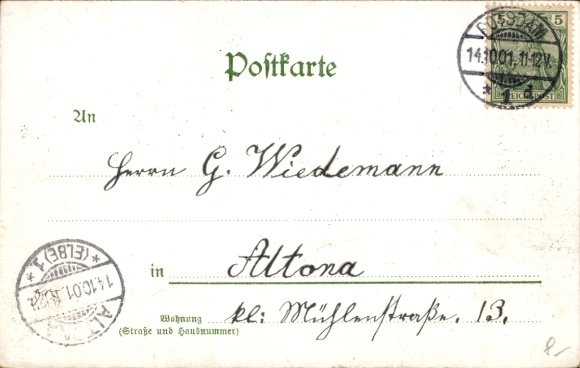 5
POTSDAM
14.10.01. 11-12V.
* 1 d
REICHSPOST
Postkarte
An
Herrn G. Wiedemann
in Altona
Wohnung
(Straße und Hausnummer)
kl: Mühlenstraße. 13.
ALTONA
14.10.01.
* (ELBE) 1 *
8-